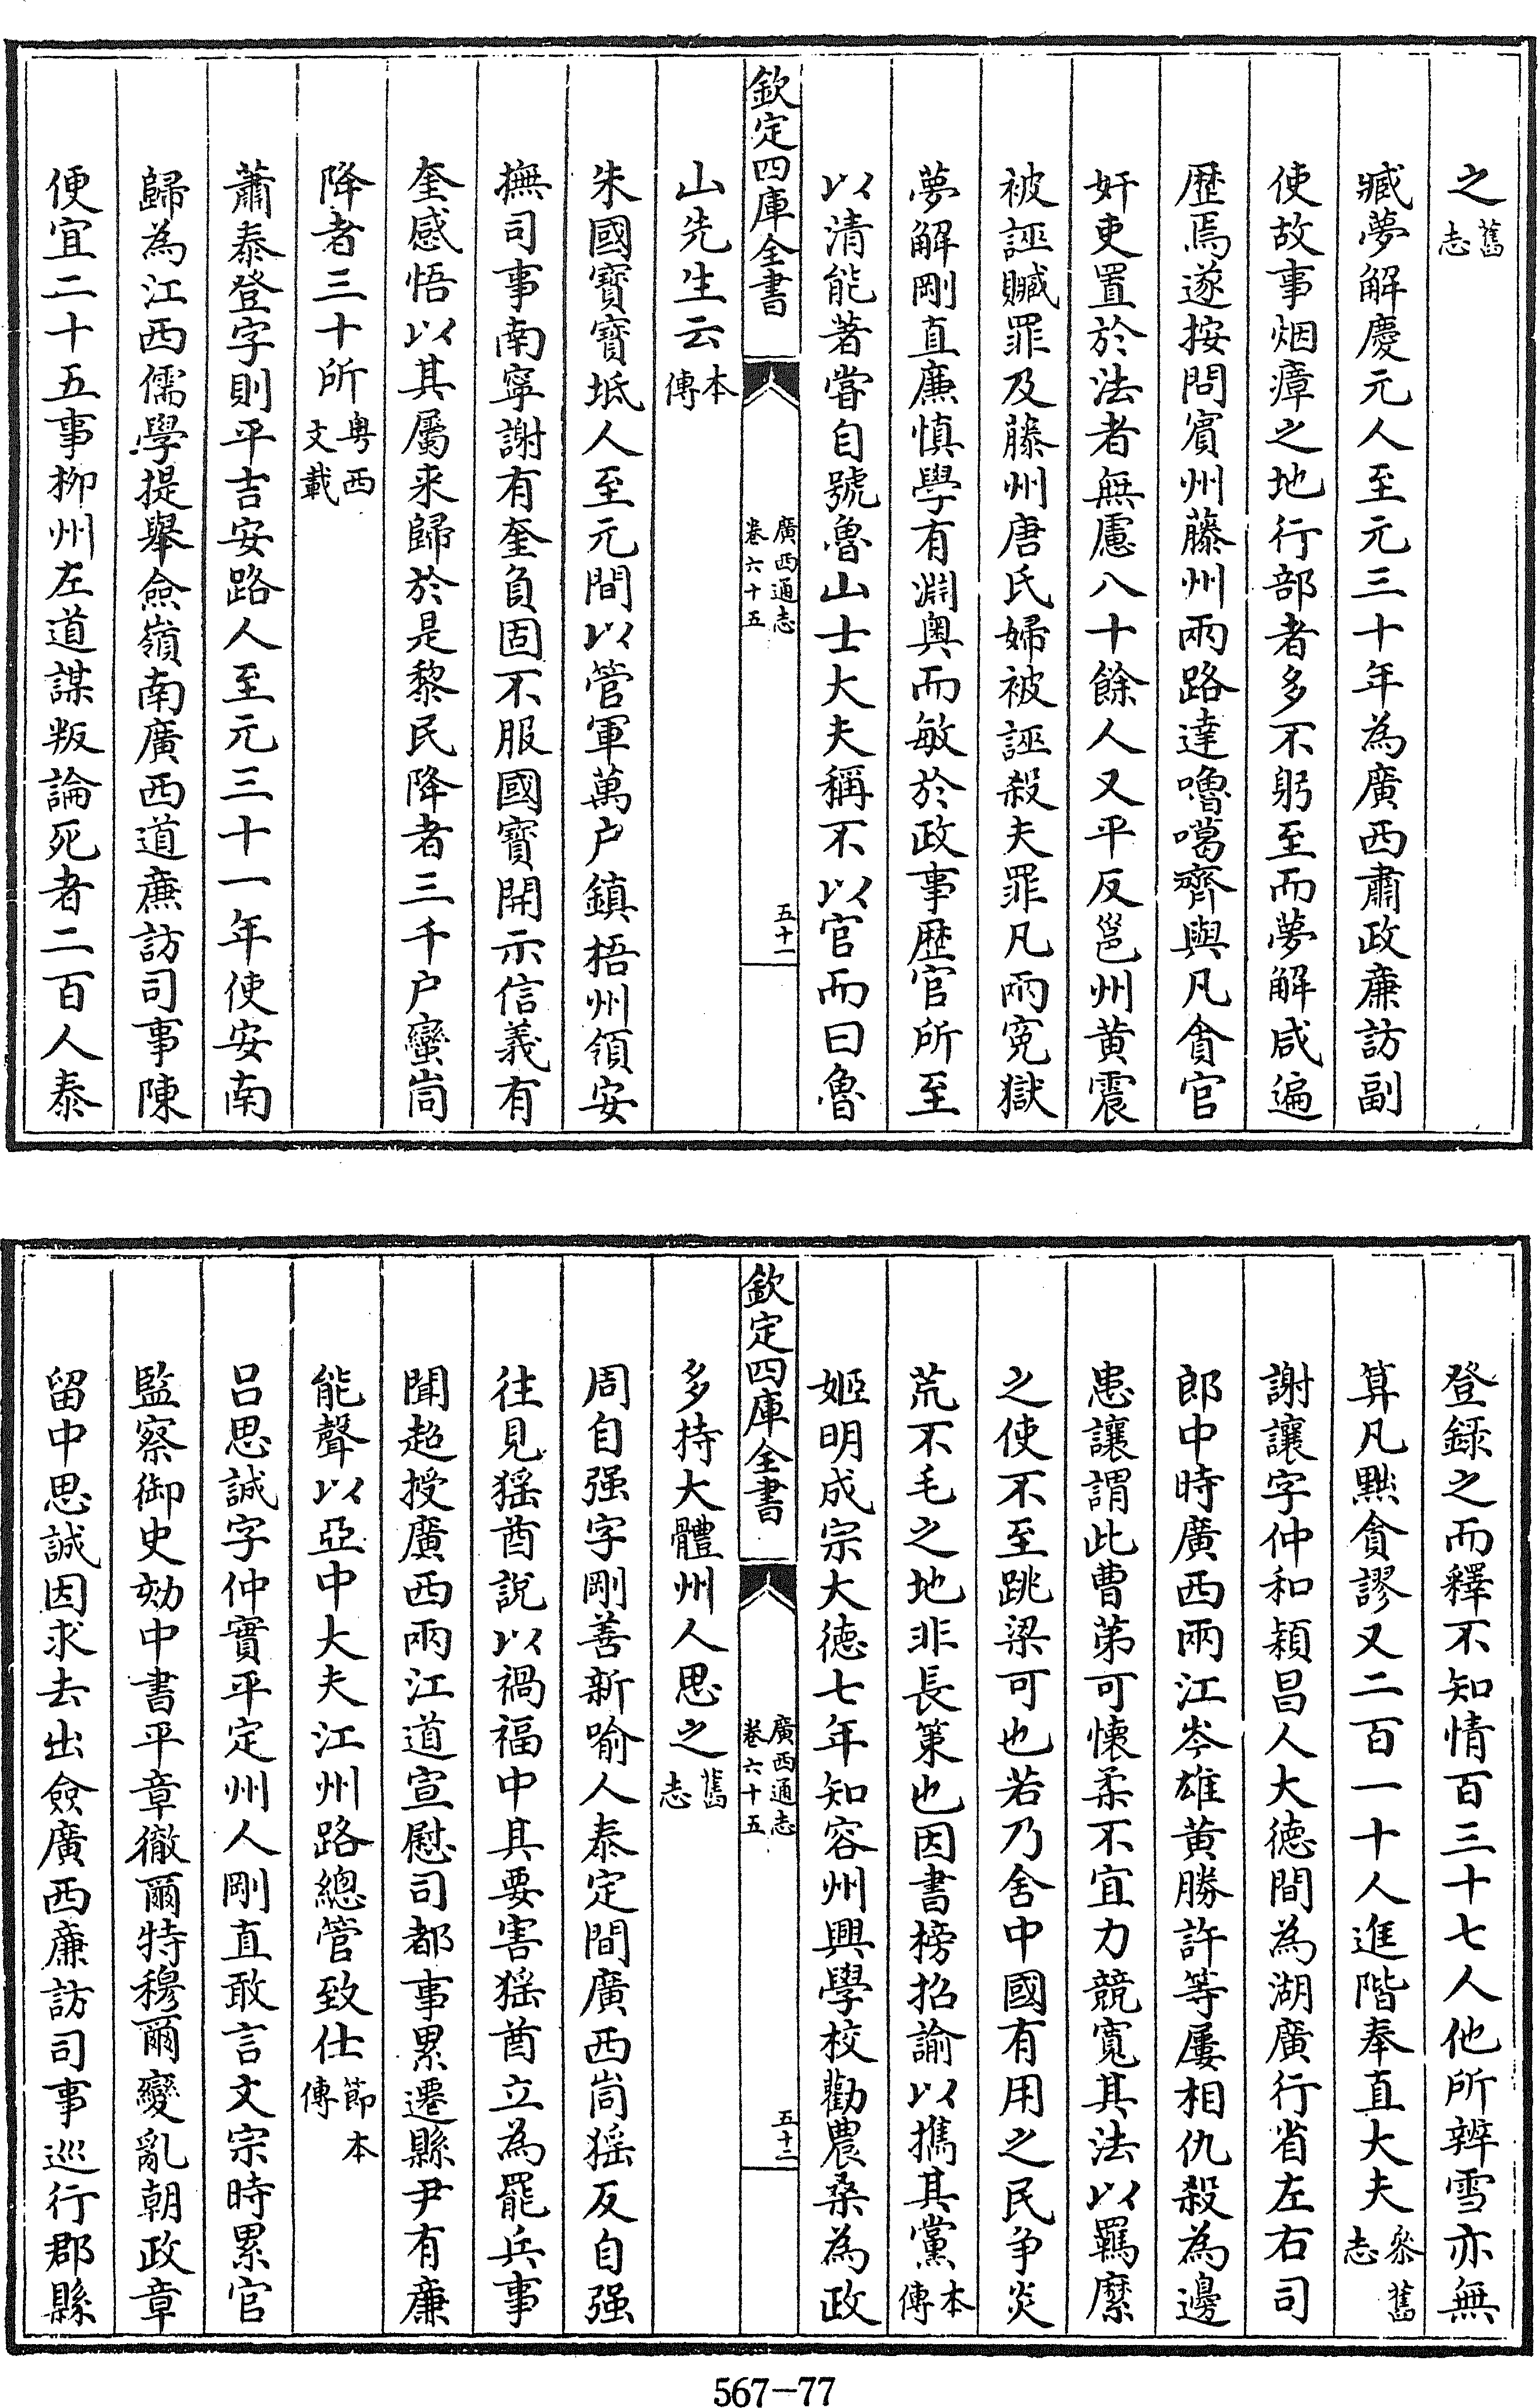 之舊志
臧夢解慶元人至元三十年為廣西肅政亷訪副
使故事烟瘴之地行部者多不躬至而夢解咸遍
歴焉遂按問賓州藤州兩路達嚕噶齊與凡貪官
奸吏置於法者無慮八十餘人又平反邕州黄震
被誣贓罪及藤州唐氏婦被誣殺夫罪凡兩寃獄
夢解剛直亷慎學有淵奥而敏於政事歴官所至
以清能著嘗自號魯山士大夫稱不以官而曰魯
欽定四庫全書
廣西通志
卷六十五
五十一
山先生云本傳
朱國寶寶坻人至元間以管軍萬户鎮梧州領安
撫司事南寧謝有奎負固不服國寶開示信義有
奎感悟以其屬来歸於是黎民降者三千户蠻峝
降者三十所粤西文載
蕭泰登字則平吉安路人至元三十一年使安南
歸為江西儒學提舉僉嶺南廣西道亷訪司事陳
便宜二十五事柳州左道謀叛論死者二百人泰
登錄之而釋不知情百三十七人他所辨雪亦無
算凡黜貪謬又二百一十人進階奉直大夫叅舊志
謝讓字仲和穎昌人大徳間為湖廣行省左右司
郎中時廣西兩江岑雄黄勝許等屢相仇殺為邊
患讓謂此曹苐可懐柔不宜力競寛其法以羈縻
之使不至跳梁可也若乃舍中國有用之民争炎
荒不毛之地非長策也因書榜招諭以攜其黨本傳
姬明成宗大徳七年知容州興學校勸農桑為政
欽定四庫全書
廣西通志
卷六十五
五十二
多持大體州人思之舊志
周自强字剛善新喻人泰定間廣西峝猺反自强
往見猺酋說以禍福中其要害猺酋立為罷兵事
聞超授廣西兩江道宣慰司都事累遷縣尹有亷
能聲以亞中大夫江州路總管致仕節本傳
吕思誠字仲實平定州人剛直敢言文宗時累官
監察御史劾中書平章徹爾特穆爾變亂朝政章
留中思誠因求去出僉廣西亷訪司事巡行郡縣
567-77